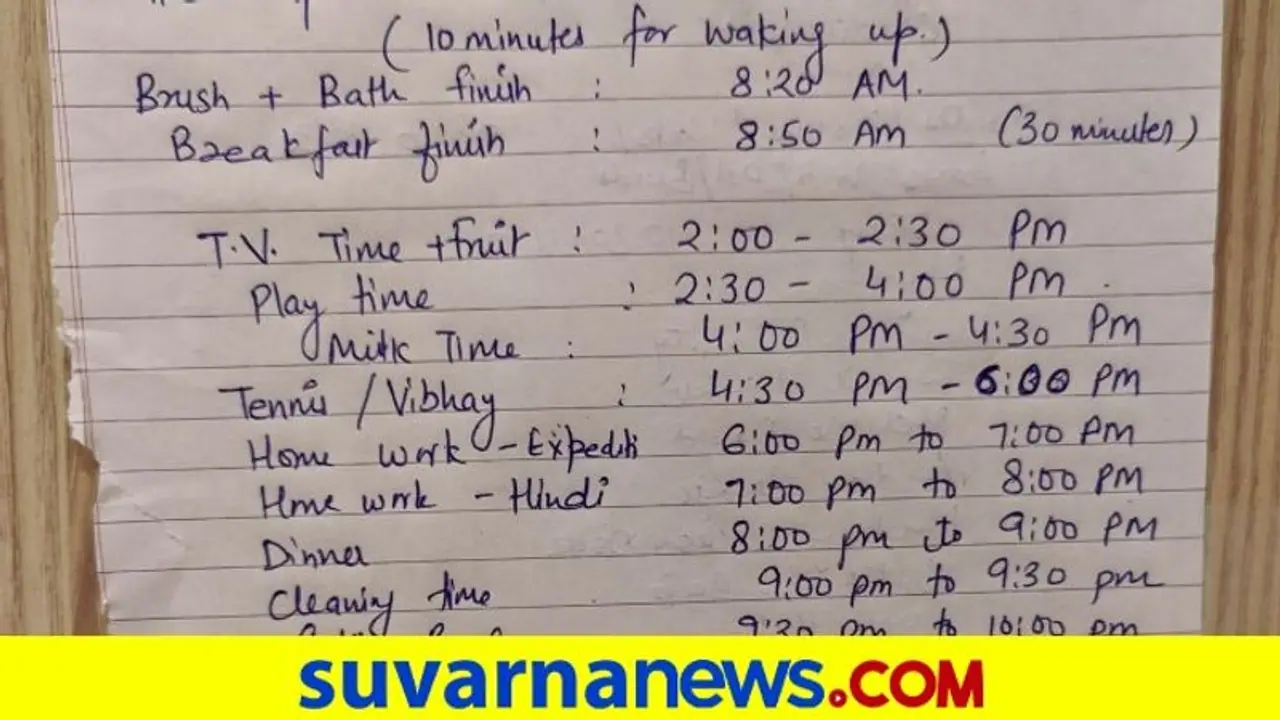 ( 10 minutes for waking up.)
Brush + Bath finish : 8:20 AM.
Breakfast finish : 8:50 AM (30 minutes)
T.V. Time + fruit : 2:00 - 2:30 PM
Play time : 2:30 - 4:00 PM .
Milk Time : 4:00 PM - 4:30 PM
Tennis / Vibhay : 4:30 PM - 6:00 PM
Home work - Expediti 6:00 pm to 7:00 PM
Home work - Hindi 7:00 pm to 8:00 PM
Dinner 8:00 pm to 9:00 PM
Cleaning time 9:00 pm to 9:30 pm
9:30 pm to 10:00 pm
suvarnanews.COM